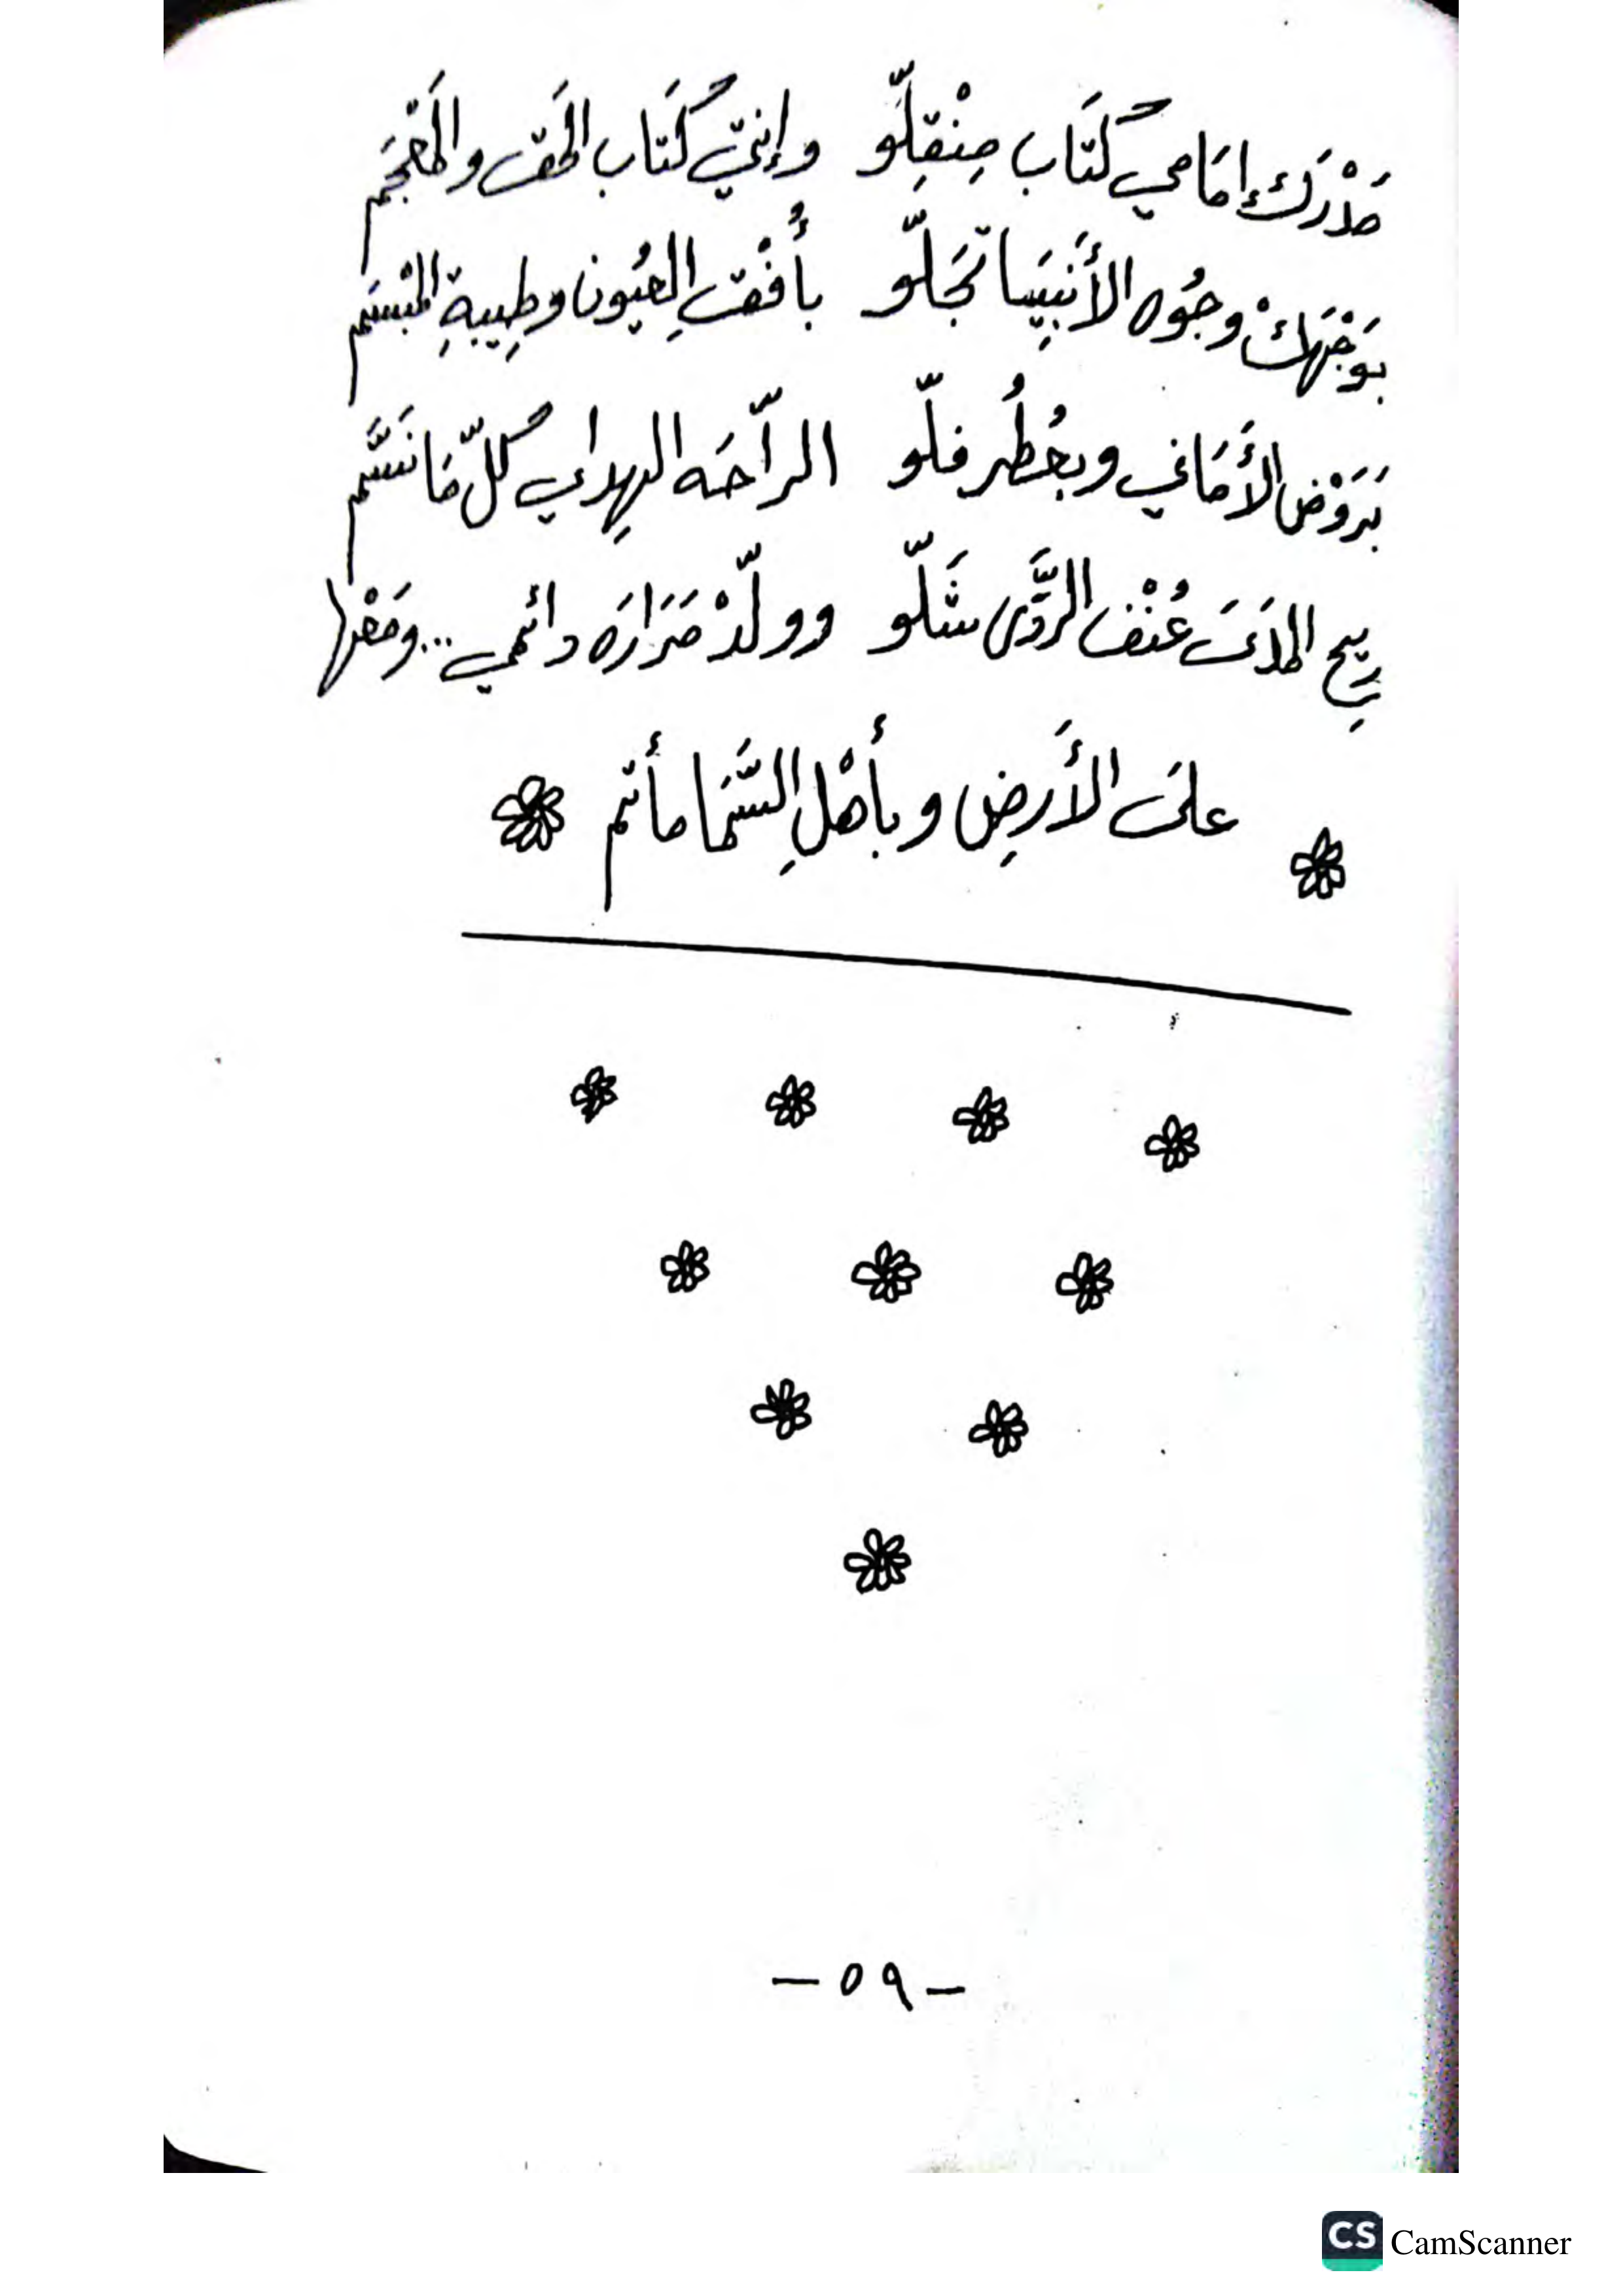 صَدْرَك إمَامي كْتَاب مِنْقِلّو وإنتي كْتَاب الحَق والمَعْجَم
بوَجْهَكْ وجُوه الأَنبِيَا تجَلّو بأُفْقِ العيُون وطِيبةِ المَبْسَم
بَرَوْض الأَمَاني وبعُطُر فلّو الرّاحَه البِهداي كلّ مَا نسَّم
رِيح المدَىَ عُنْف الرَّدَى شَلّو وولّدْ مَرَارَه دائمي ... ومَعْها
علىَ الأَرضِ وبأهْلِ السَّمَا مأتم
- ٥٩ -
CS CamScanner